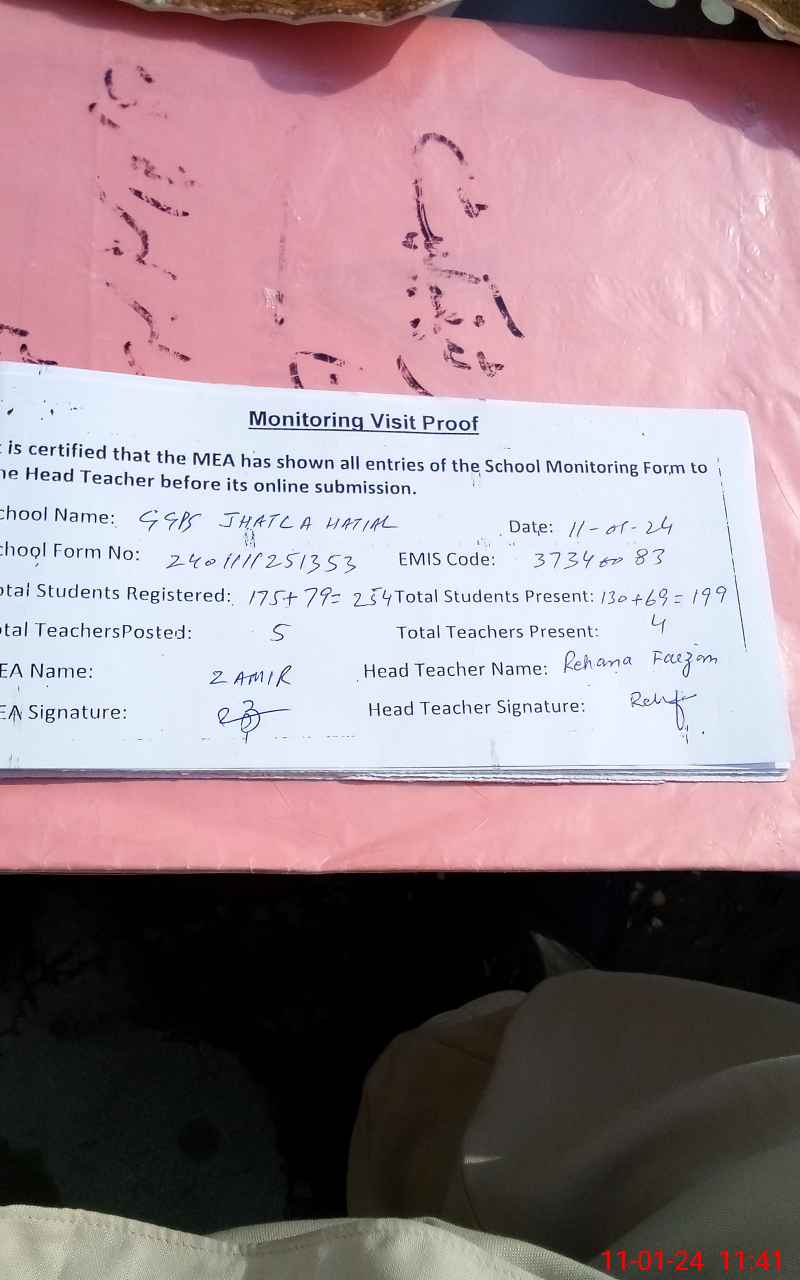 Monitoring Visit Proof
t is certified that the MEA has shown all entries of the School Monitoring Form to
he Head Teacher before its online submission.
chool Name: GGPS JHATLA HATIAL Date: 11-01-24
chool Form No: 2401111251353 EMIS Code: 3734 83
otal Students Registered: 175+79= 254 Total Students Present: 130+69= 199
otal TeachersPosted: 5 Total Teachers Present: 4
EA Name: ZAMIR Head Teacher Name: Rehana
EA Signature: Head Teacher Signature:
11-01-24 11:41